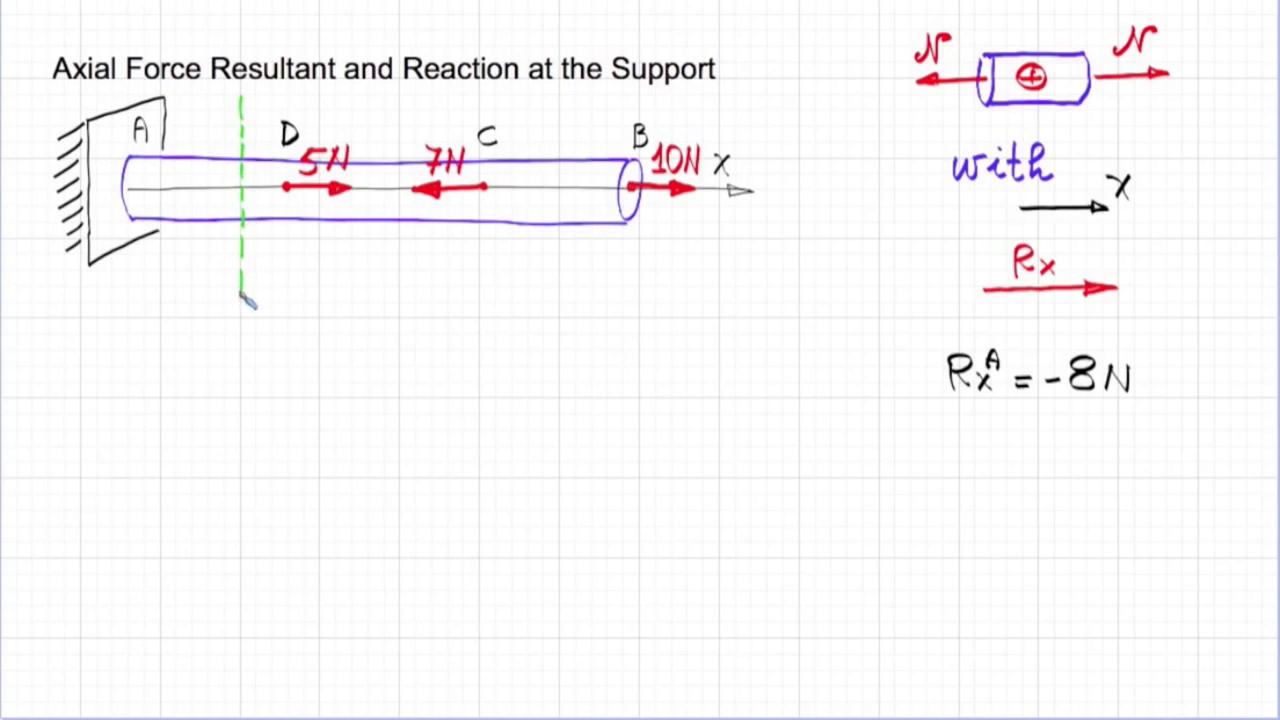 Axial Force Resultant and Reaction at the Support
N N
A D C B
5N 7N 10N X
with
x
Rx
RxA = -8N